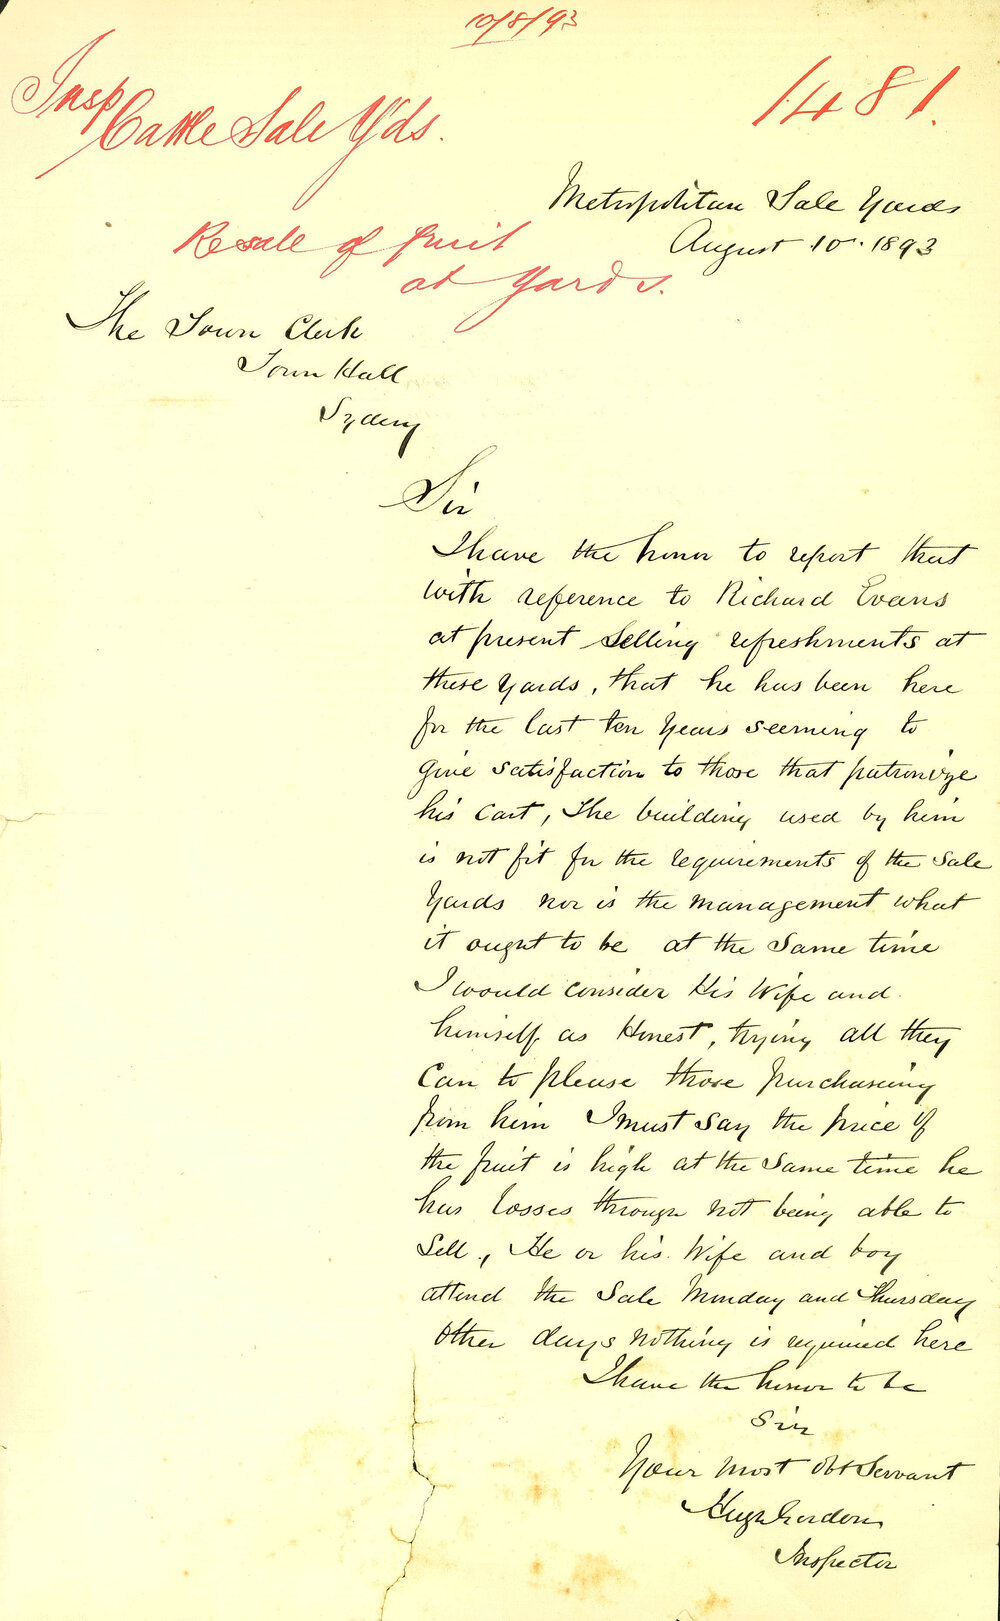 10/8/93
Insp Cattle Sale Yds.
1481.
Metropolitan Sale Yards
August 10. 1893
Re sale of fruit
at Yards.
The Town Clerk
Town Hall
Sydney
Sir
I have the honor to report that
with reference to Richard Evans
at present selling refreshments at
these Yards, that he has been here
for the last ten years seeming to
give satisfaction to those that patronize
his cart, The building used by him
is not fit for the requirements of the Sale
Yards nor is the management what
it ought to be at the same time
I would consider His Wife and
himself as Honest, trying all they
can to please those purchasing
from him I must say the price of
the fruit is high at the same time he
has losses through not being able to
sell., He or his Wife and boy
attend the Sale Monday and Thursday
Other days nothing is required here
I have the honor to be
Sir
Your most obt Servant
Hugh Gordon
Inspector